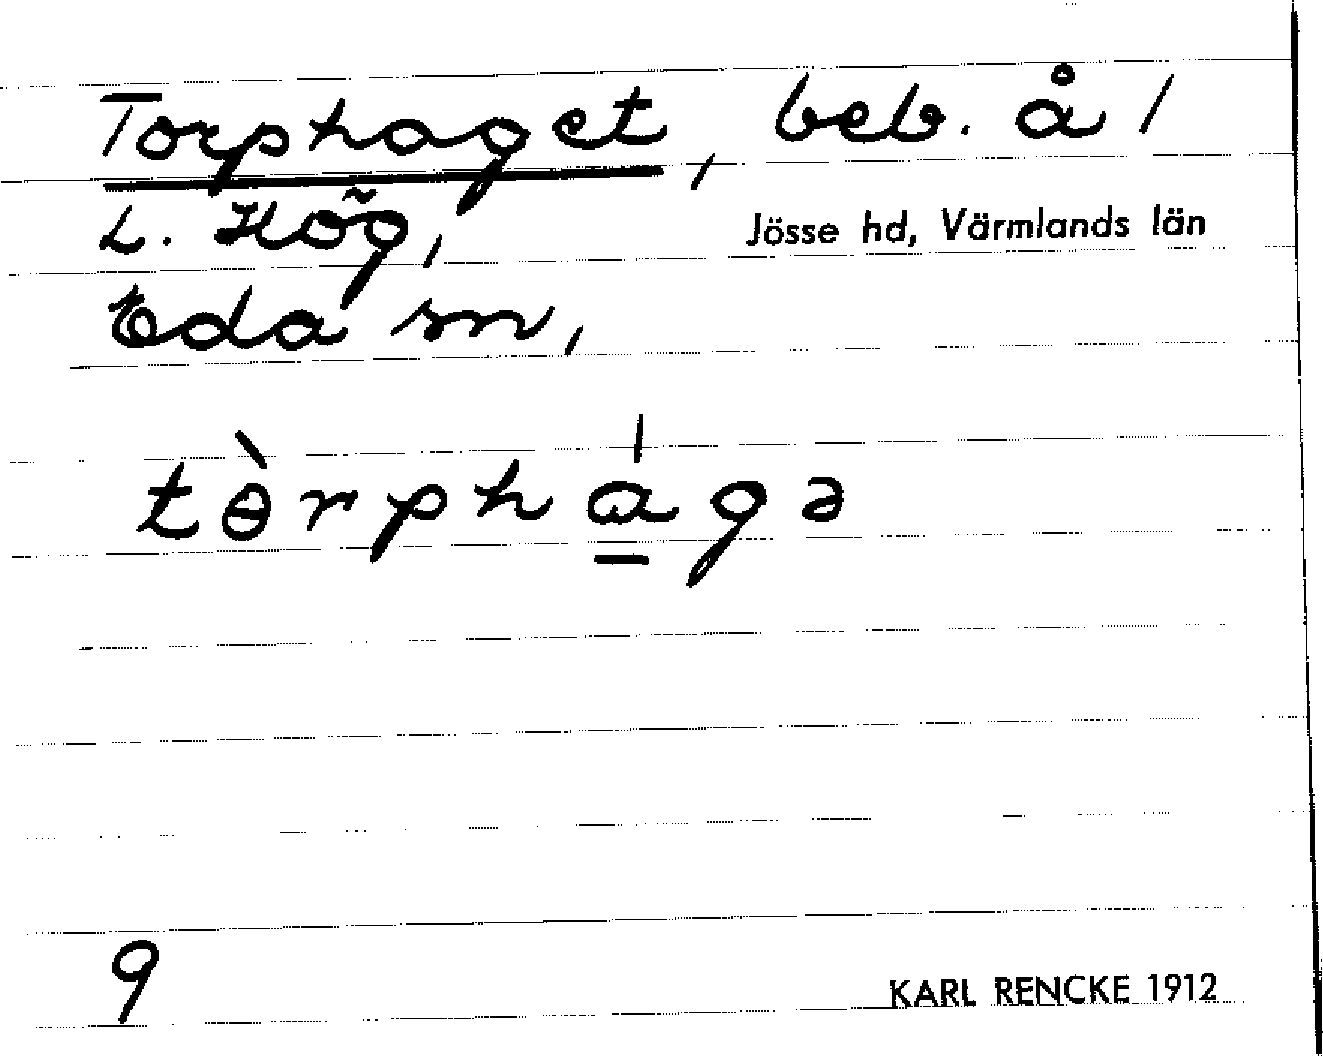 Torphaget, beb. å /
L. Hög, Jösse hd, Värmlands län
Eda sn,
tɵ̀rpha̱̍gə
9
KARL RENCKE 1912